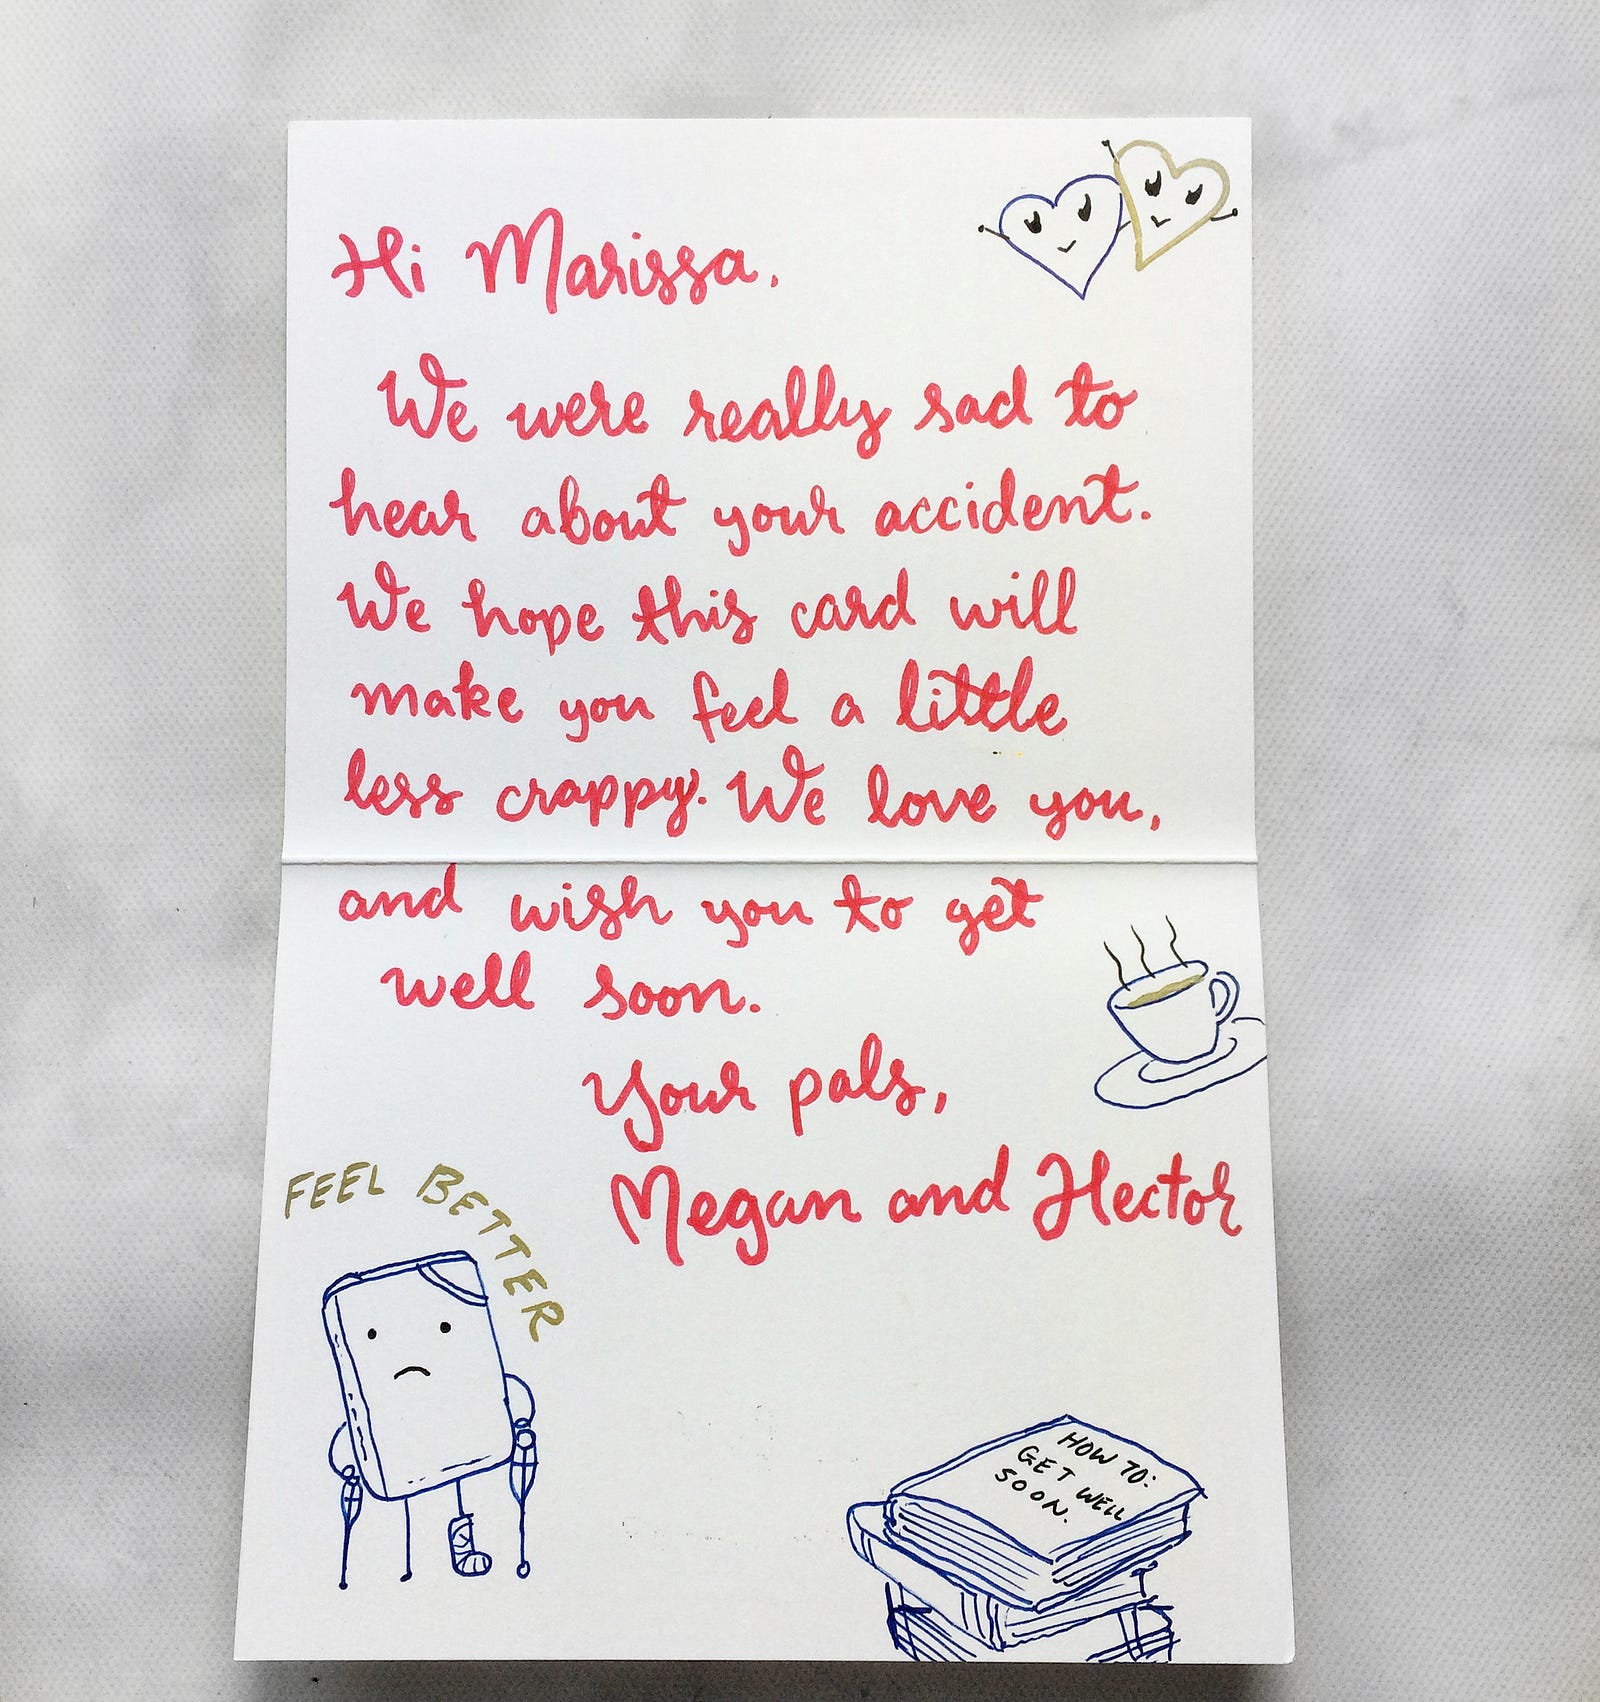 Hi Marissa,
We were really sad to
hear about your accident.
We hope this card will
make you feel a little
less crappy. We love you,
and wish you to get
well soon.
Your pals,
Megan and Hector
FEEL BETTER
HOW TO:
GET WELL
SOON.